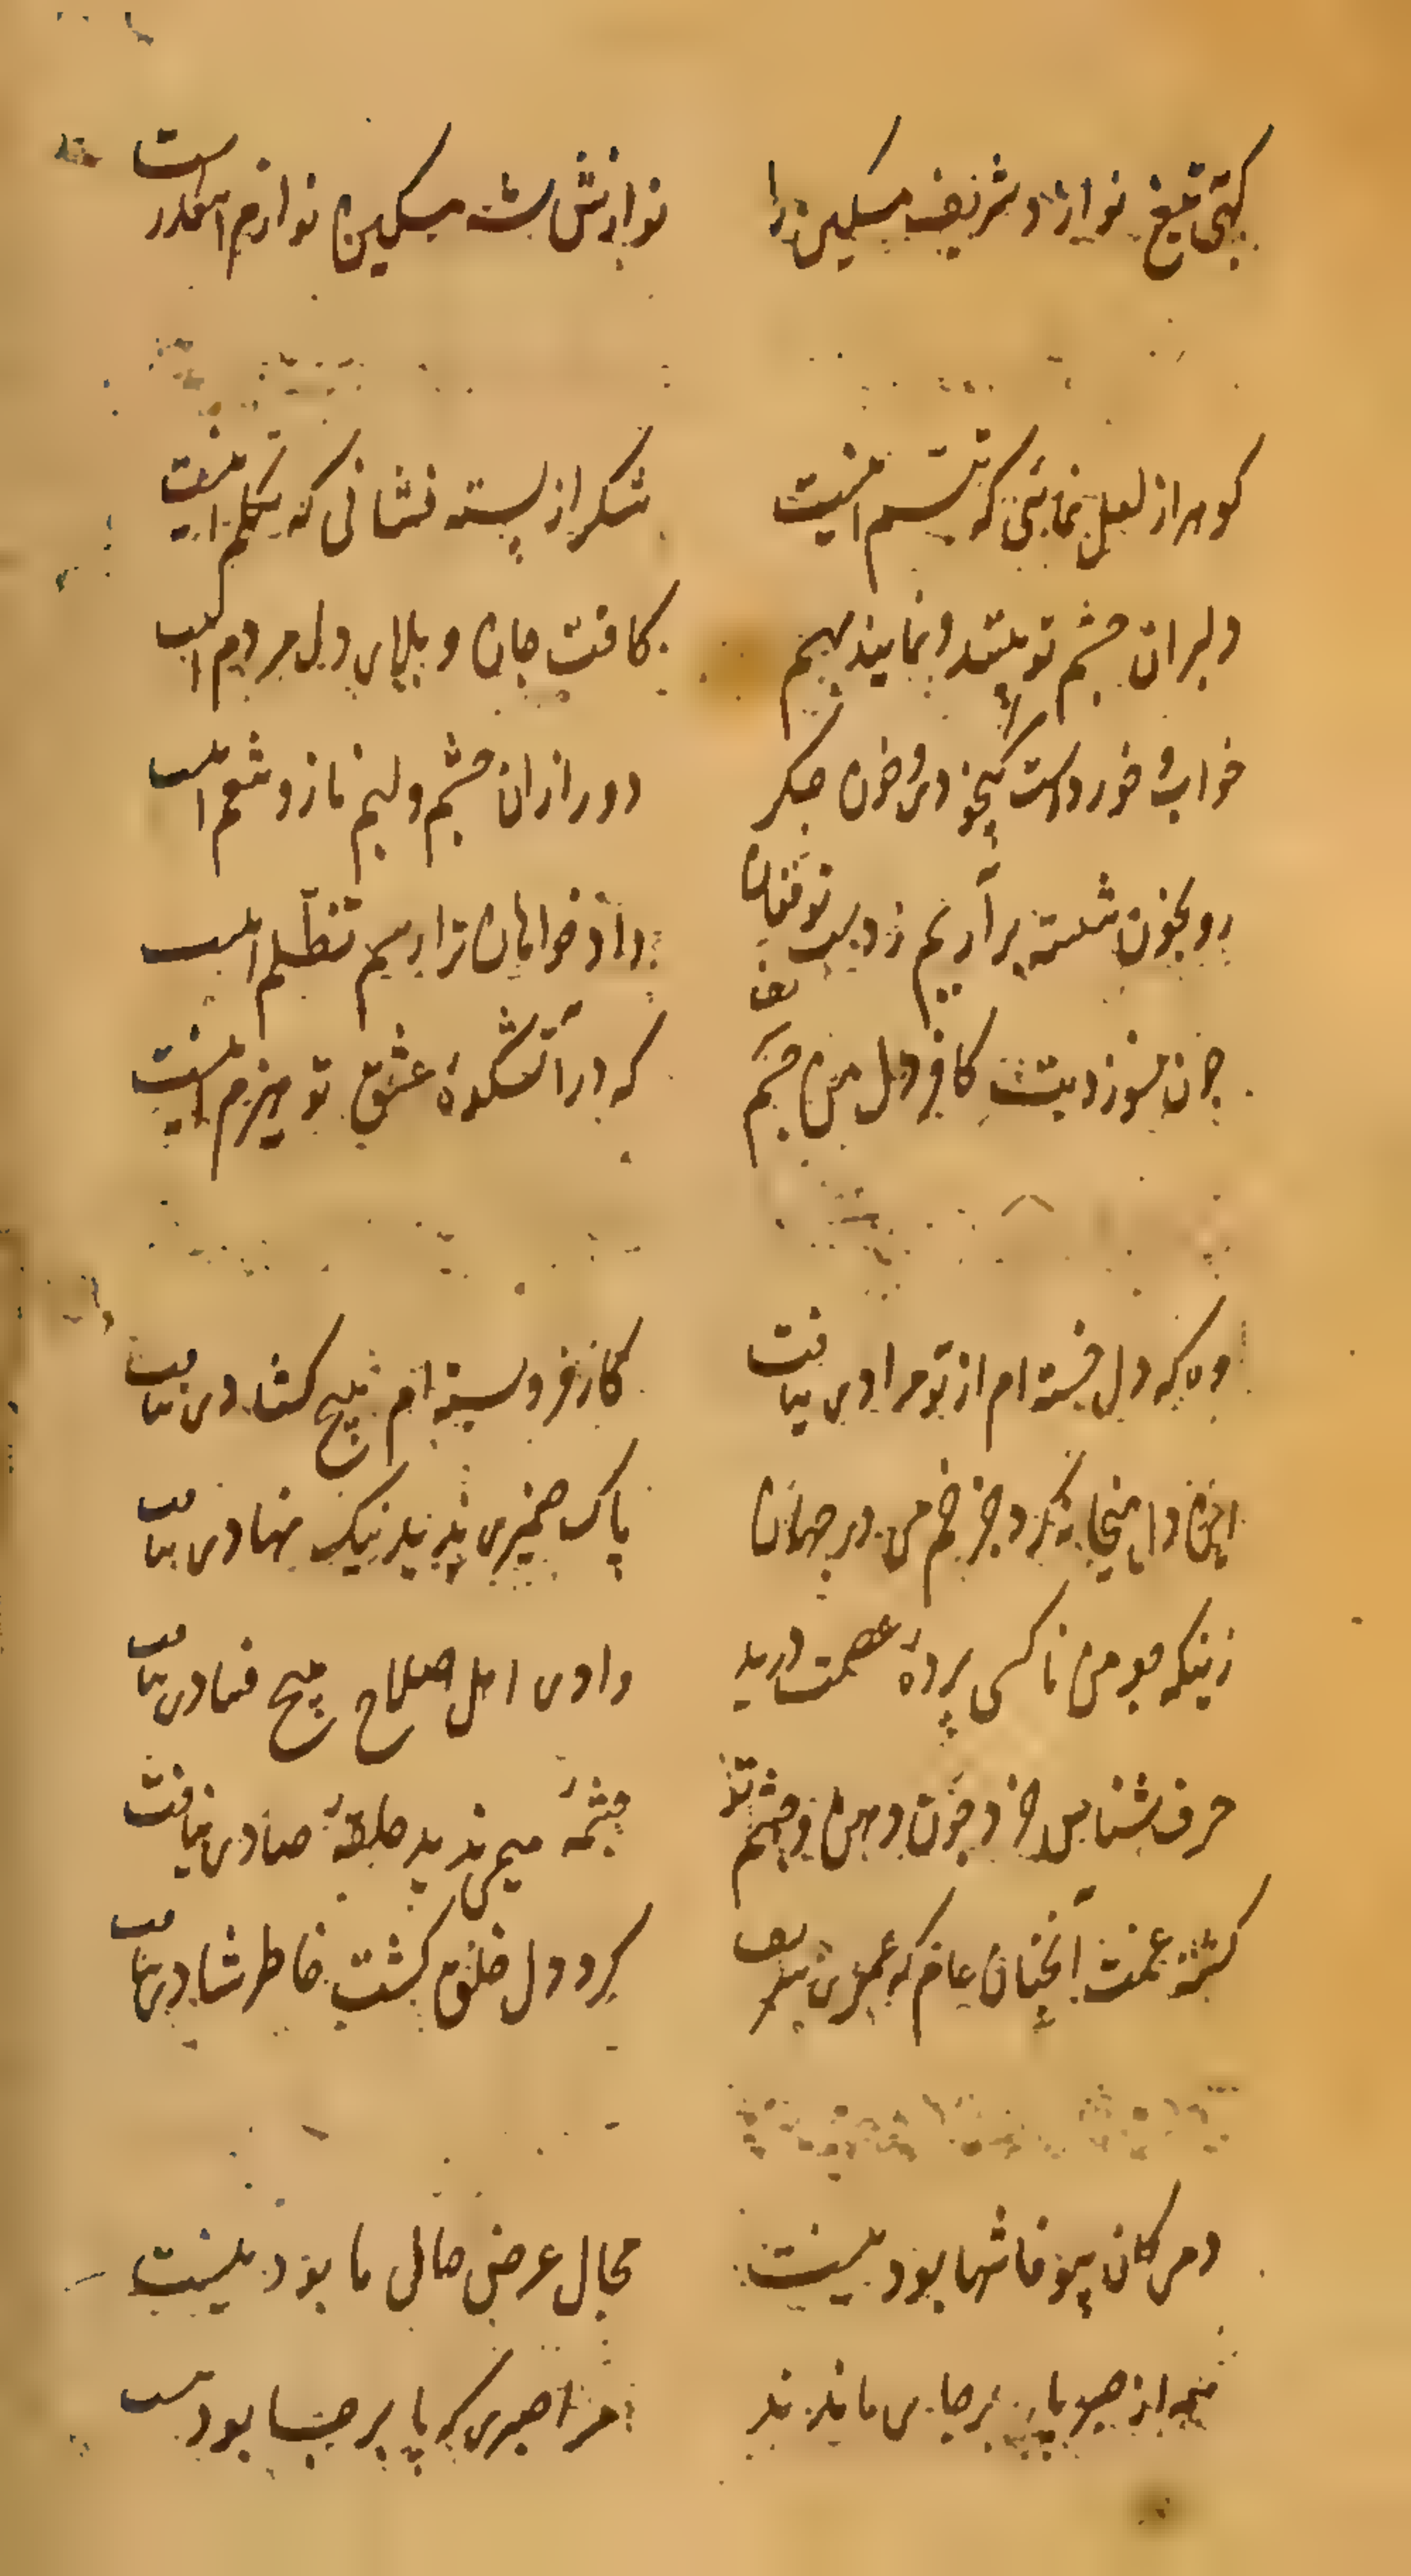 گهی تیغ نوازد شریف مسکین را
نوازش شه مسکین نوازم اینقدر است
گوهر از لعل نمائی که تبسم اینست
شکر از پسته فشانی که تکلم اینست
دلبران چشم تو بینند و نمایند بهم
کافت جان و بلای دل مردم اینست
خواب و خوردست بیخودی و خون جگر
دور از ان چشم و لبم ناز و تنعم اینست
رو بخون شسته برآریم ز دستت تو فغان
داد خواهان ترا رسم تظلم اینست
چون نسوزد بتِ کافر دل من چکنم
که در آتشکدهٔ عشق تو هیزم اینست
وه که دل خسته ام از تو مرادی نیافت
کار فرو بسته ام هیچ گشادی نیافت
پاک ضمیری ندید نیک نهادی نیافت
زینکه چو من ناکسی پردهٔ عصمت درید
وادی اهل صلاح هیچ فسادی نیافت
حرف شناس خرد چون دهن و چشم تو
چشمهٔ میمی ندید حلقهٔ صادی نیافت
کشته غمت آنچنان عام که عمری شریف
گرد دل خلق گشت خاطر شادی نیافت
دمی کان بیوفا تنها بود نیست
مجال عرض حالی ما بود نیست
برجای ماند ند
مرا صبری که پا بر جا بود نیست